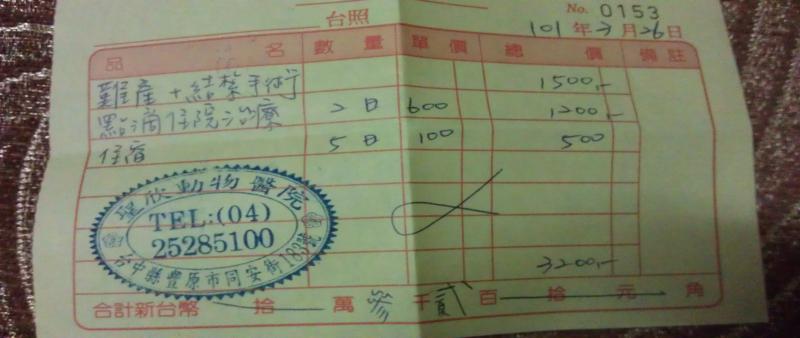 No. 0153
台照
101年3月26日
品名 數量 單價 總價 備註
難產+結紮手術 1500,-
點滴住院治療 2日 600 1200,-
住宿 5日 100 500
聖欣動物醫院
TEL:(04)
25285100
台中縣豐原市同安街183號
3200,-
合計新台幣 拾 萬 參 千 貳 百 拾 元 角